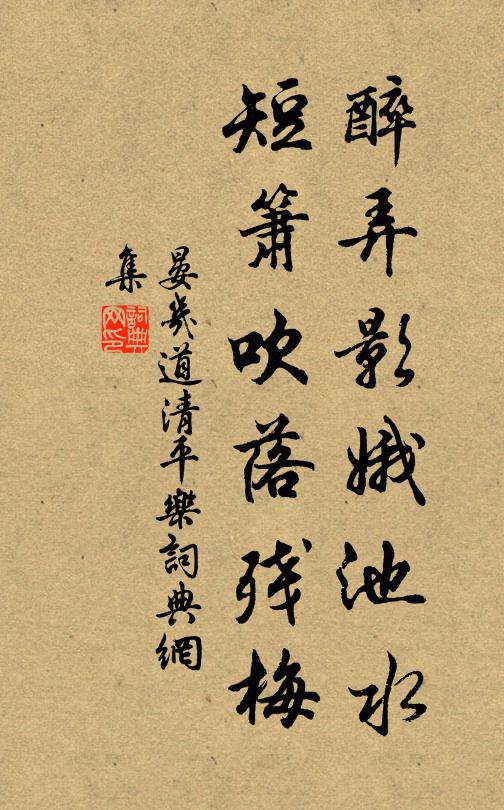 醉弄影娥池水
短簫吹落殘梅
晏幾道清平樂詞典網
集
詞典网印